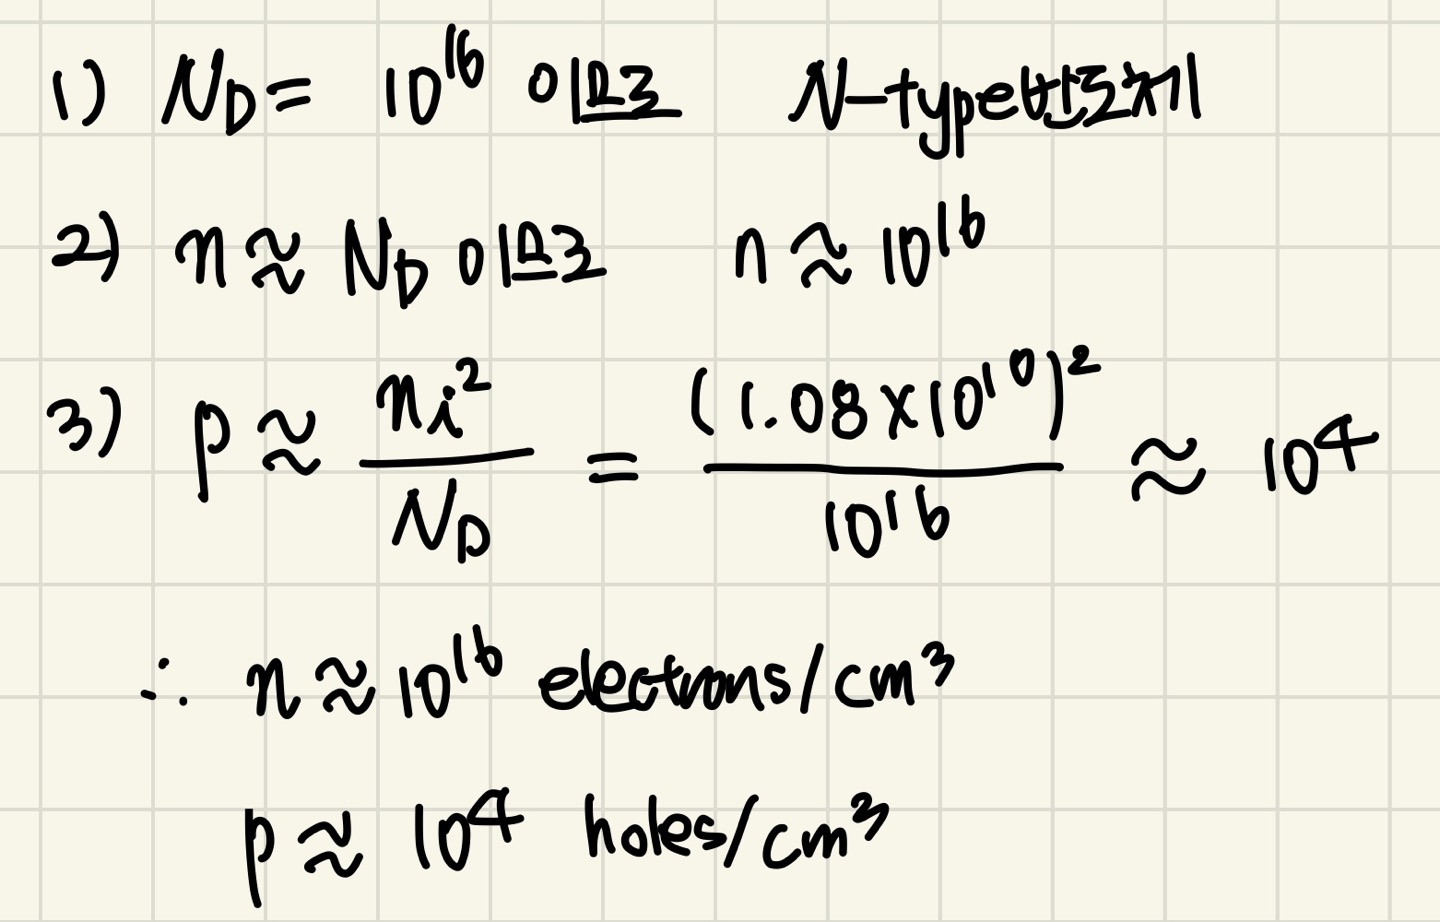 1) N_D = 10^16 이므로 N-type반도체
2) n ≈ N_D 이므로 n ≈ 10^16
3) p ≈ n_i^2 / N_D = (1.08×10^10)^2 / 10^16 ≈ 10^4
∴ n ≈ 10^16 electrons/cm^3
p ≈ 10^4 holes/cm^3